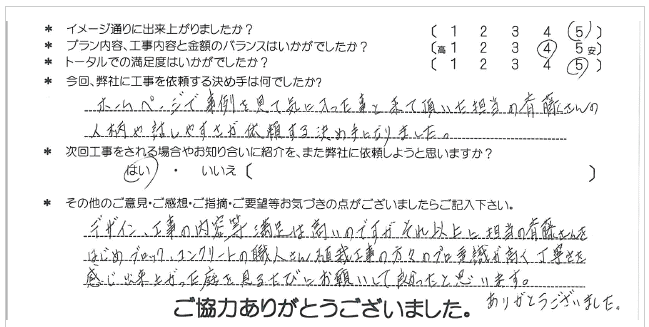 * イメージ通りに出来上がりましたか? 〔 1 2 3 4 5 〕
* プラン内容、工事内容と金額のバランスはいかがでしたか? 〔高 1 2 3 4 5 安〕
* トータルでの満足度はいかがでしたか? 〔 1 2 3 4 5 〕
* 今回、弊社に工事を依頼する決め手は何でしたか?
ホームページで事例を見て気に入った事と来て頂いた担当の斉藤さんの
人柄や話しやすさが依頼する決め手になりました。
* 次回工事をされる場合やお知り合いに紹介を、また弊社に依頼しようと思いますか?
はい ・ いいえ〔 〕
* その他のご意見・ご感想・ご指摘・ご要望等お気づきの点がございましたらご記入下さい。
デザイン、工事の内容等満足は高いのですがそれ以上に担当の斉藤さんを
はじめブロック、コンクリートの職人さん植栽工事の方々のプロ意識が高く丁寧さを
感じ出来上がった庭を見るたびにお願いして良かったと思います。
ありがとうございました。
ご協力ありがとうございました。